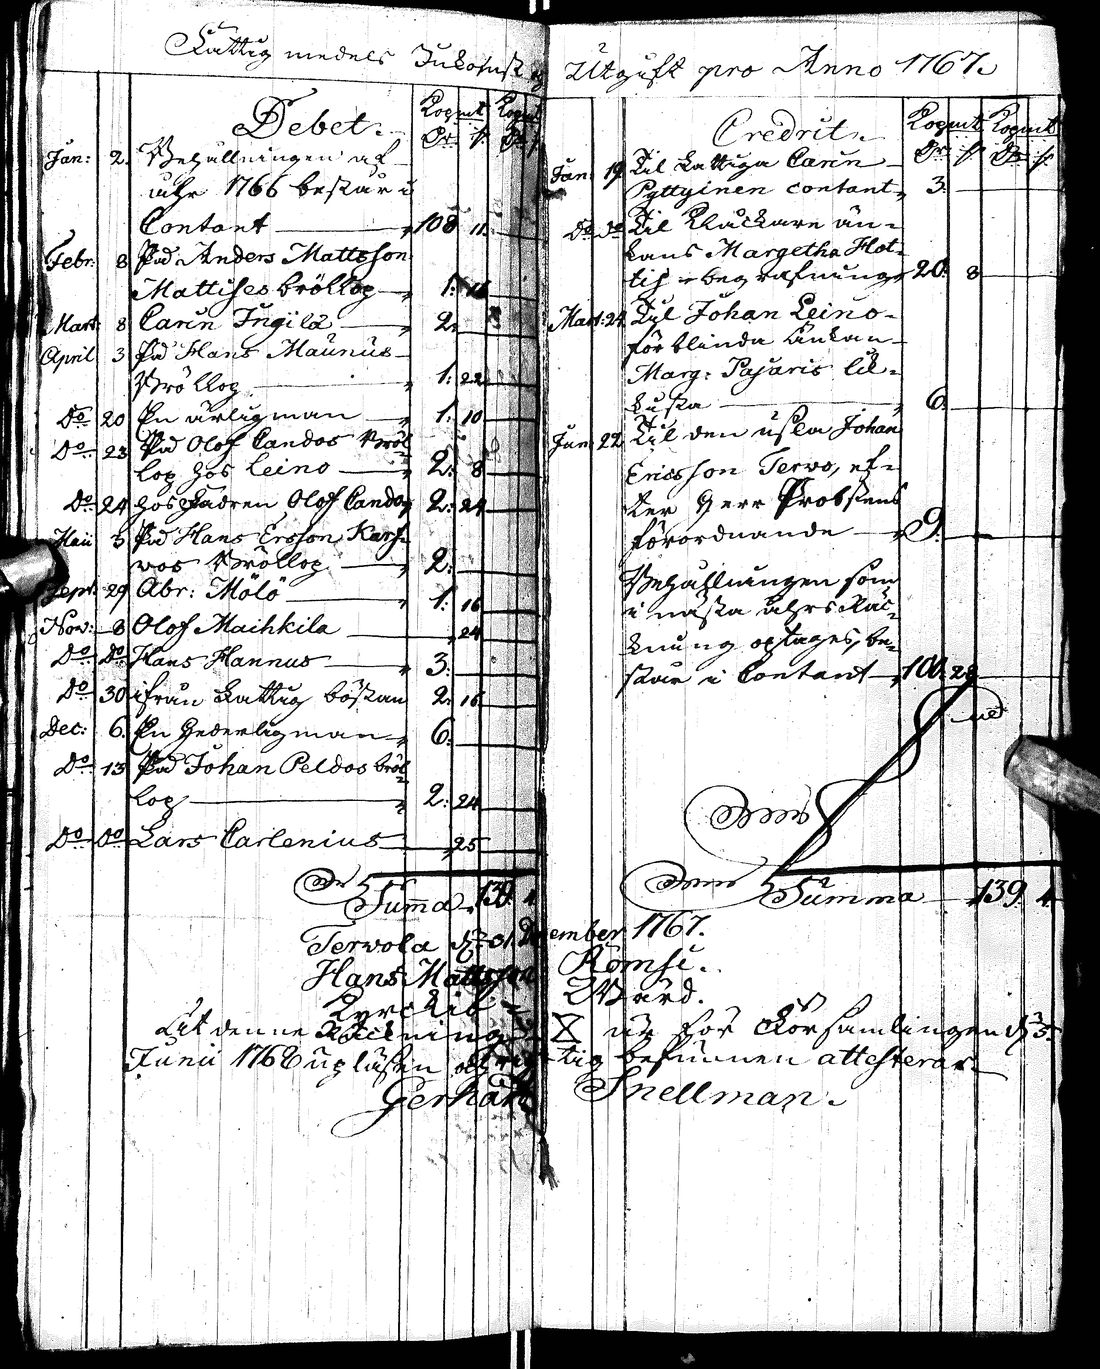 Fattig medels Inkomst og Utgift pro Anno 1767.
Debet. Kopmt Kopmt
Dr. s. Dr. s.
Jan: 2. Behållningen af
åhr 1766 består i
Contant 108 11.
Febr: 8 På Anders Mattsson
Mattises bröllop 1: 16
Mart: 8 Carin Ingilä 2:
April 3 På Hans Maunus
Bröllop 1: 22
Do 20 En ärlig man 1: 10
Do 23 På Olof Candos Bröl=
lop hos Leino 2: 8
Do 24 hos Fadren Olof Candos 2: 24
Maii 3 På Hans Ersson Karh=
vos Bröllop 2:
Sept: 29 Abr: Mölö 1: 16
Nov: 8 Olof Maihkila 24
Do Do Hans Hannus 3:
Do 30 ifrån Fattig bössan 2: 16
Dec: 6. En Hederlig man 6:
Do 13 På Johan Peldos bröl=
lop 2: 24
Do Do Lars Carlenius 25
Summa 139. 4.
Credit. Kopmt Kopmt
Dr s. Dr s.
Jan: 19 Til Fattiga Carin
Pyttyinen contant 3:
Do Do Til Klåckare än=
kans Margetha Hot=
tis begrafning 20: 8
Mart: 24 Til Johan Leino
för blinda Änkan
Marg: Pajaris lik=
kista 6:
Jun: 22 Til den usla Johan
Ericsson Tervo, ef=
ter Herr Probstens
förordnande 9:
Behållningen som
i nästa åhrs Räk=
kning optages, be=
står i Contant 100: 28
Summa 139. 4.
Tervola d. 31 December 1767.
Hans Mattsson Römsi.
Kyrckio Wärd.
At denne Räckning är för Församlingen d. 5
Junii 1768 upläsen och riktig befunnen attesterar
Gerhard Snellman.